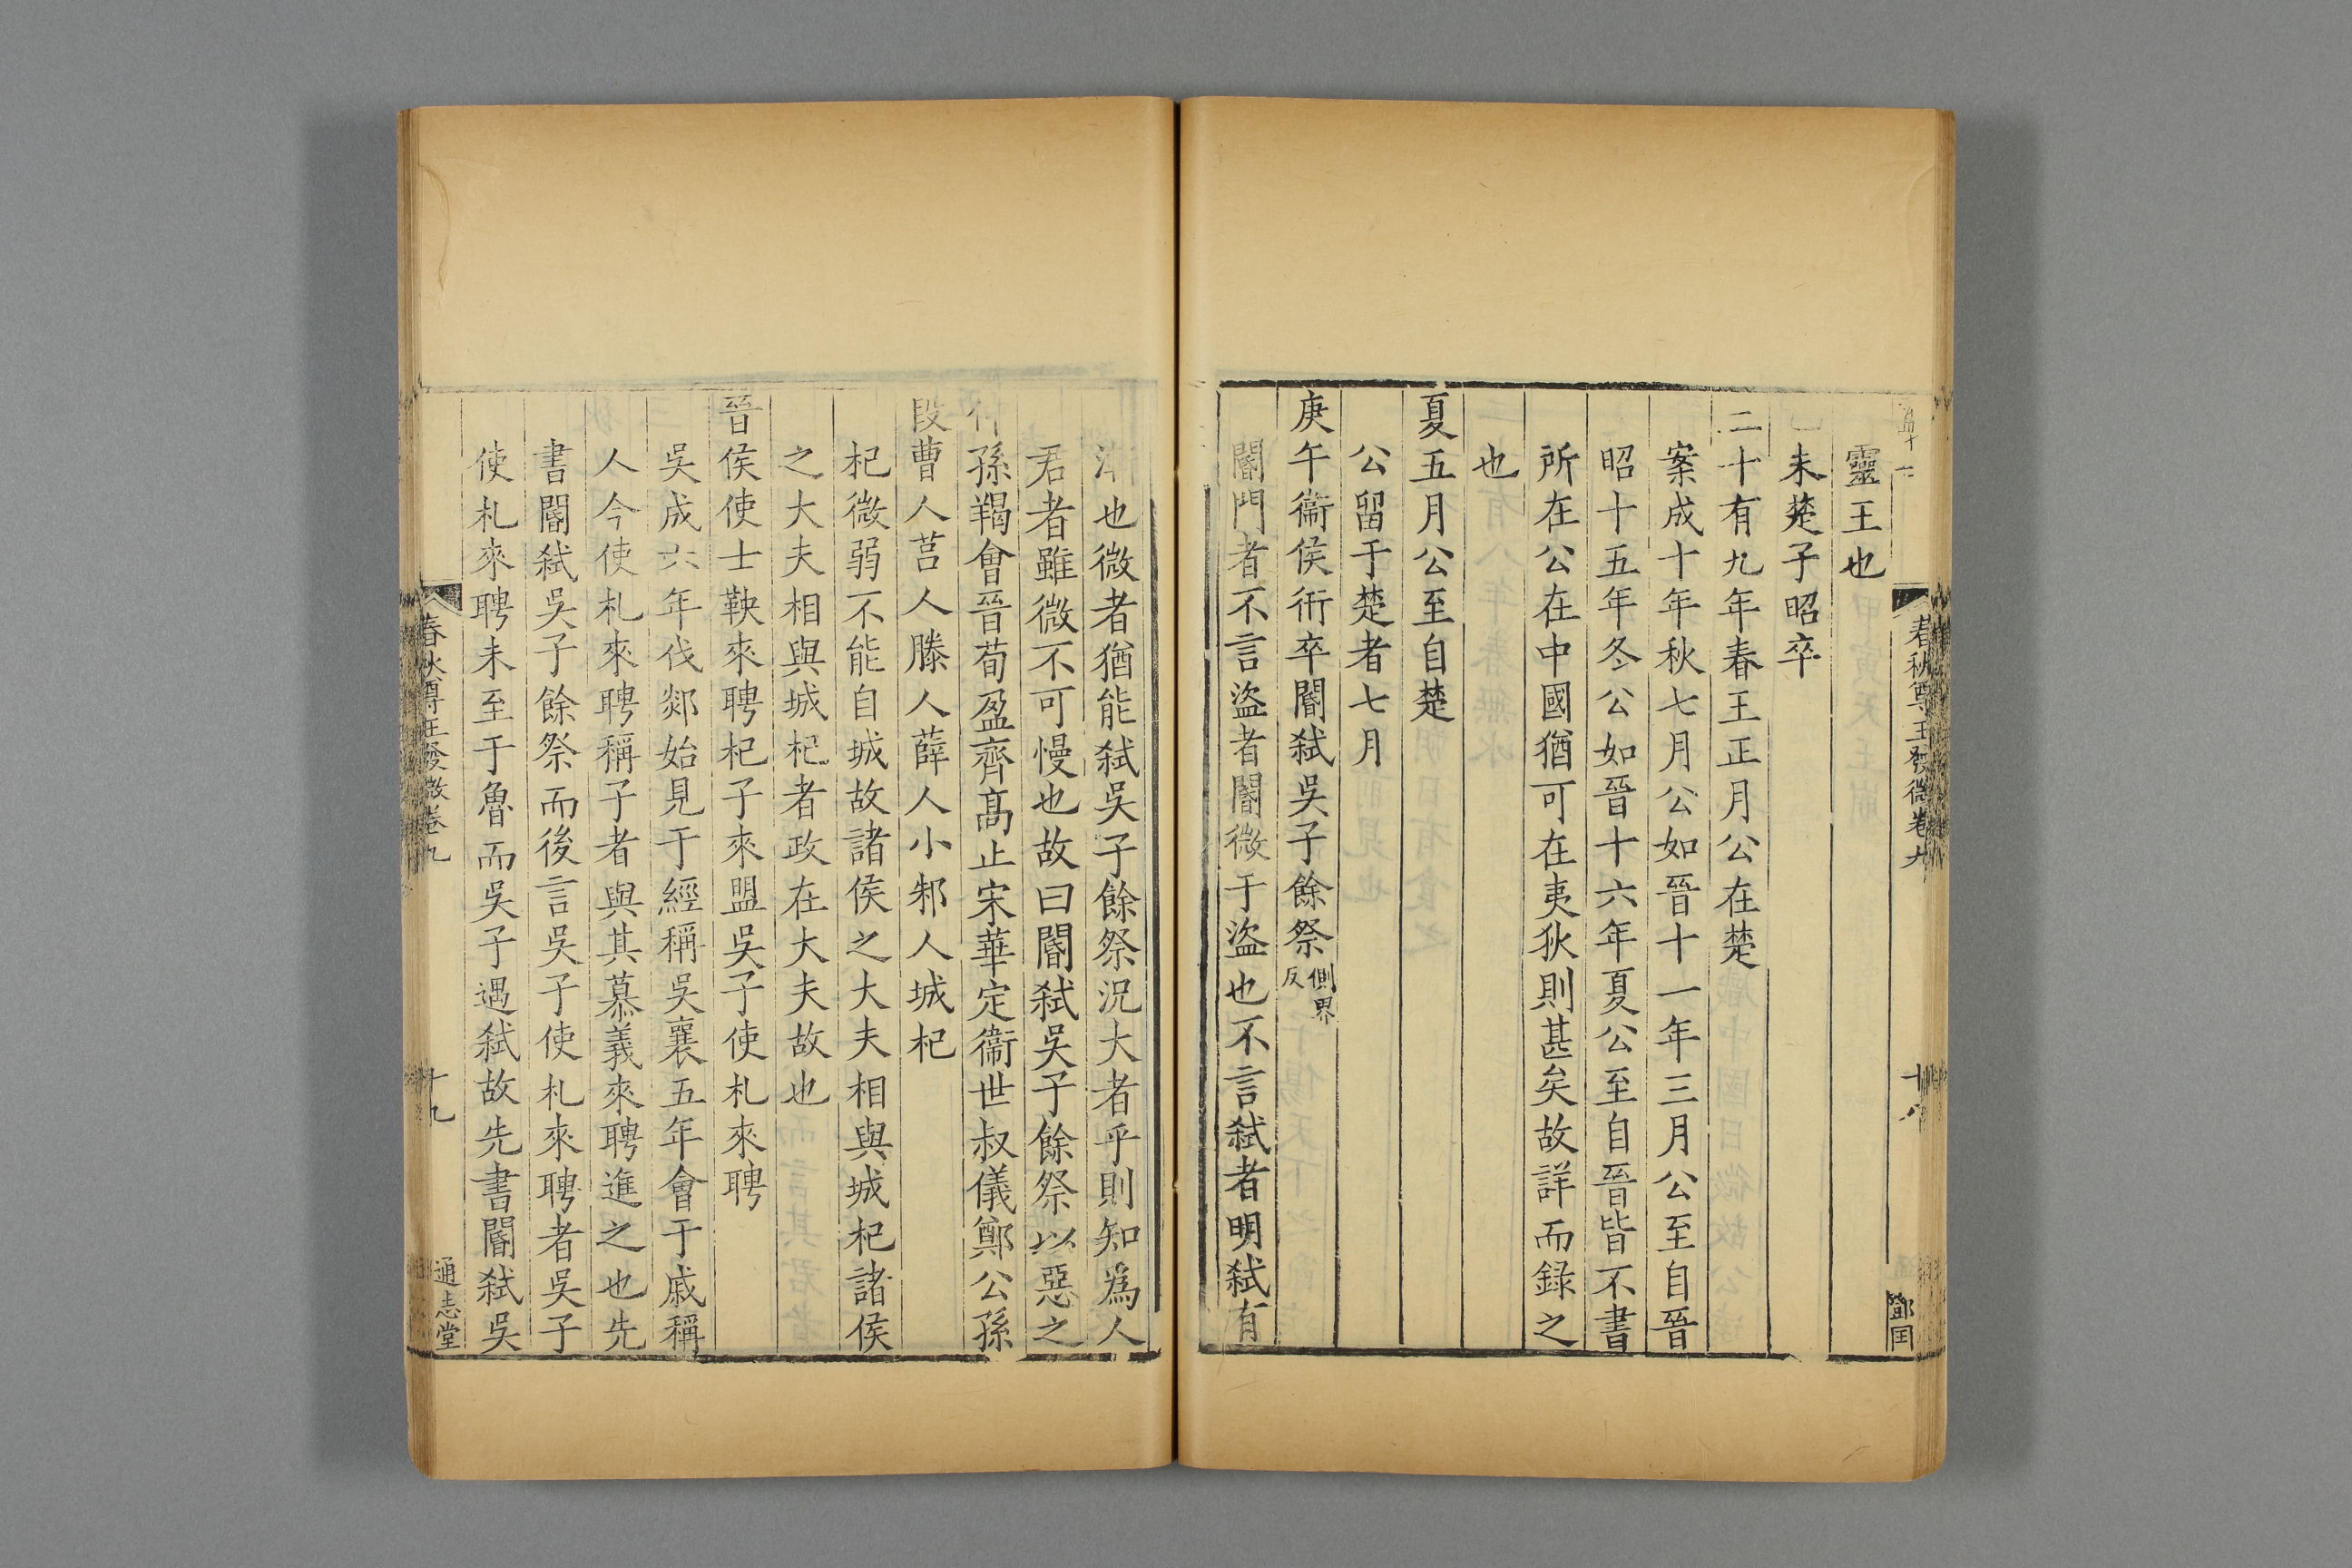 春秋尊王發微卷九
十八
鄧国
靈王也
未楚子昭卒
二十有九年春王正月公在楚
案成十年秋七月公如晉十一年三月公至自晉
昭十五年冬公如晉十六年夏公至自晉皆不書
所在公在中國猶可在夷狄則甚矣故詳而錄之
也
夏五月公至自楚
公留于楚者七月
庚午衞侯衎卒閽弒吳子餘祭側界反
閽門者不言盜者閽微于盜也不言弒者明弒有
也微者猶能弒吳子餘祭況大者乎則知為人
君者雖微不可慢也故曰閽弒吳子餘祭以惡之
孫羯會晉荀盈齊髙止宋華定衞世叔儀鄭公孫
段曹人莒人滕人薛人小邾人城杞
杞微弱不能自城故諸侯之大夫相與城杞諸侯
之大夫相與城杞者政在大夫故也
晉侯使士鞅來聘杞子來盟吳子使札來聘
吳成六年伐郯始見于經稱吳襄五年會于戚稱
人今使札來聘稱子者與其慕義來聘進之也先
書閽弒吳子餘祭而後言吳子使札來聘者吳子
使札來聘未至于魯而吳子遇弒故先書閽弒吳
春秋尊王發微卷九
十九
通志堂